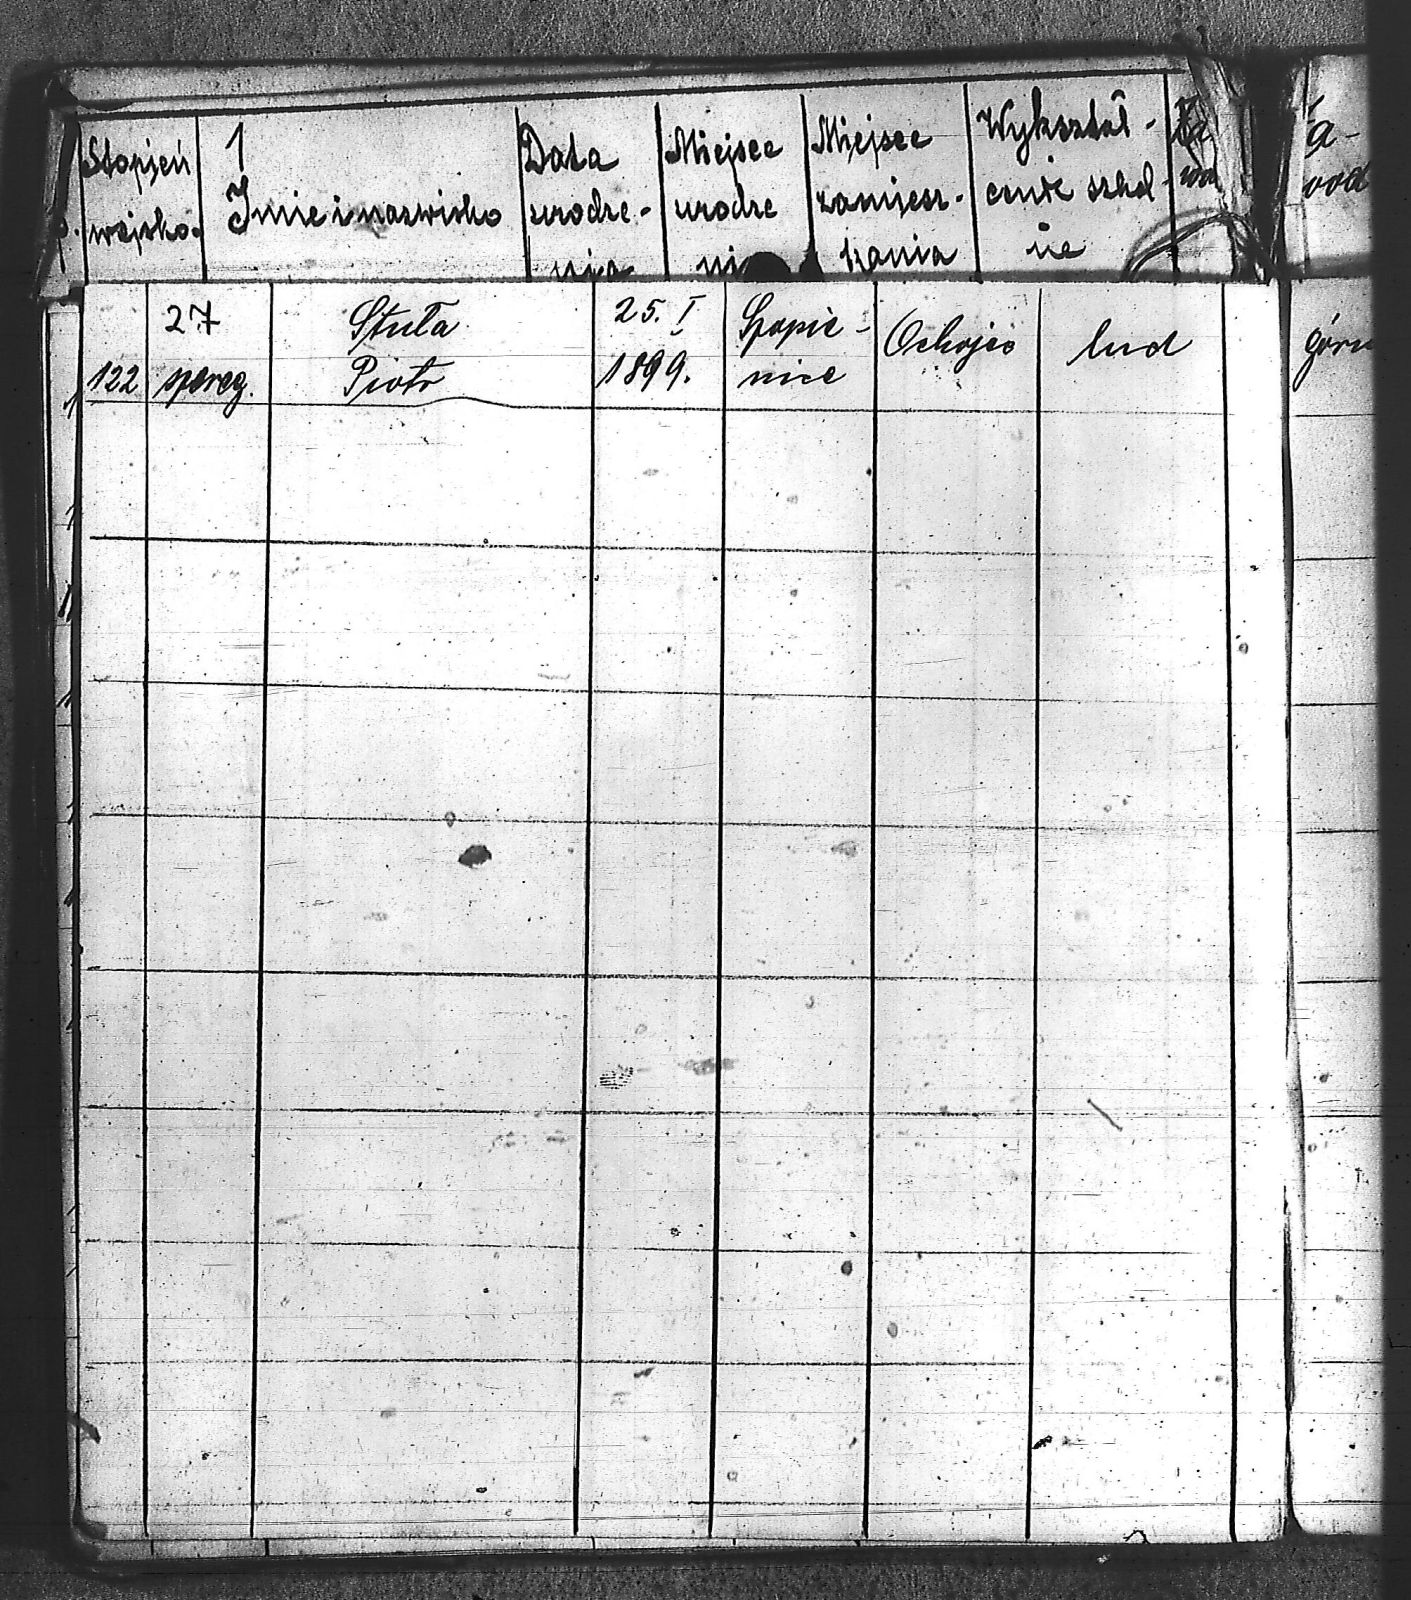 Stopień
wojsko.
1
Imie i nazwisko
Data
urodze-
nia
Miejsce
urodze
ni
Miejsce
zamiesz-
kania
Wykształ-
cenie szkol
ne
a-
wod
122
27
szereg.
Stuła
Piotr
25. I
1899.
Szopie-
nice
Ochojec
lud
górn